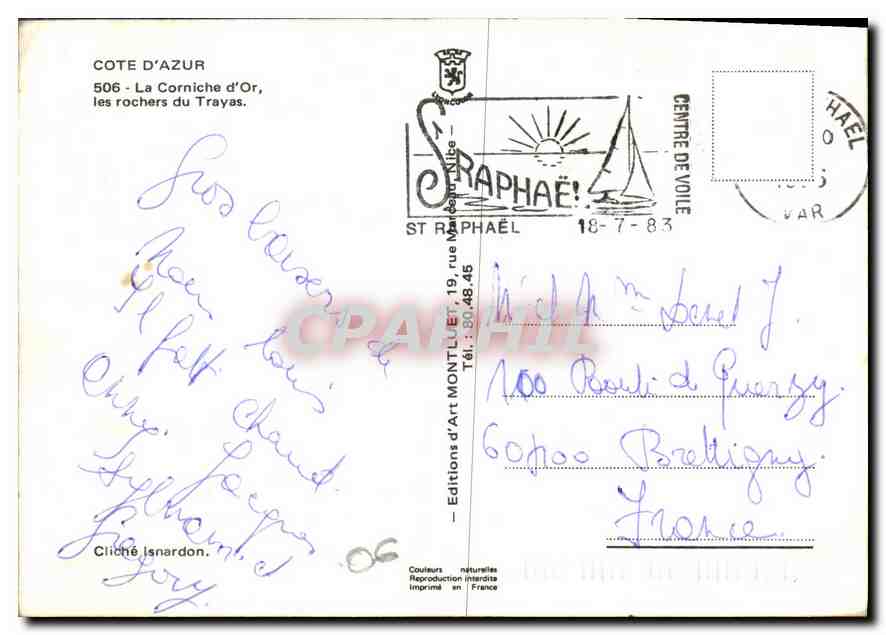 COTE D'AZUR
506 - La Corniche d'Or,
les rochers du Trayas.
Gros baisers de
Il fait chaud.
Jacques
Sylvain et
Gregory.
Cliché Isnardon.
06
— Editions d'Art MONTLUET, 19, rue Marceau, Nice —
Tél. : 80.48.45
LYONCOURR
ST RAPHAË!
ST RAPHAËL
18-7-83
CENTRE DE VOILE
HAËL
VAR
CPAPHIL
Mr et Mme J.
100 Route de
60400 Brétigny.
France
Couleurs naturelles
Reproduction interdite
Imprimé en France